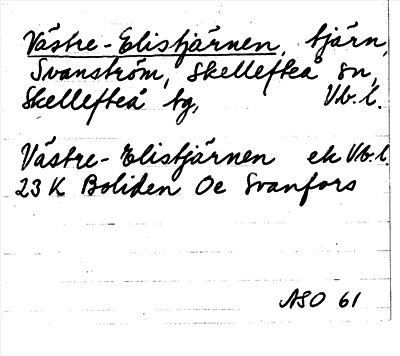 Västre-Elistjärnen, tjärn,
Svanström, Skellefteå sn,
Skellefteå tg, Vb.l.
Västre-Elistjärnen ek Vb.l.
23 K Boliden Oe Svanfors
ASO 61